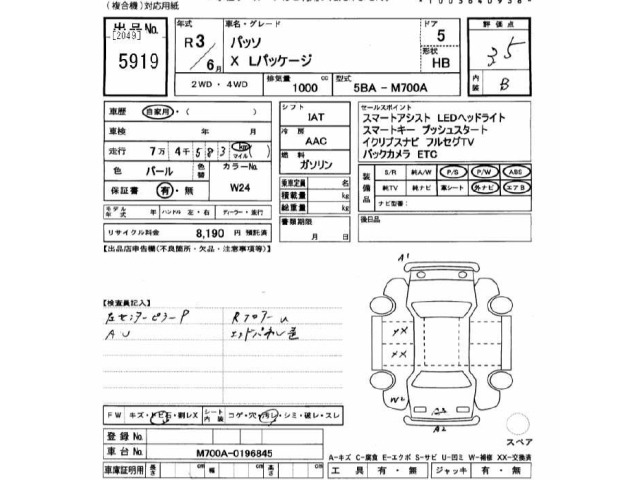 (複合機)対応用紙
出品No.
[2049]
5919
年式
R 3 / 6 月
車名・グレード
パッソ
X Lパッケージ
ドア
5
形状
HB
2WD・4WD
排気量
1000 cc
型式
5BA - M700A
評価点
3.5
内装
B
車歴 自家用・( )
車検 年 月
走行 7万 4千 5 8 3 (km マイル)
色 パール 色替 カラーNo.
W24
保証書 有・無
モデル年式 年 ハンドル 左・右 ディーラー・並行
リサイクル料金 8,190 円 預託済
シフト
IAT
冷房
AAC
燃料
ガソリン
乗車定員 名
積載量 kg
総重量 kg
書類期限
月 日
セールスポイント
スマートアシスト LEDヘッドライト
スマートキー プッシュスタート
イクリプスナビ フルセグTV
バックカメラ ETC
装備品
S/R 純A/W P/S P/W ABS
純TV 純ナビ 革シート 外ナビ エアB
ナビ型番:
後日品
【出品店申告欄(不良箇所・欠品・注意事項等)】
【検査員記入】
左センターピラーP
Rフロアーu
AU
エンドパネル色
A1
XX
XX
W2
A3
A2
スペア
FW キズ・トビ石・割レX シート内装 コゲ・穴・汚レ・シミ・破レ・スレ
登録No.
車台No. M700A-0196845
車庫証明用 長さ cm 幅 cm 高さ cm
A-キズ C-腐食 E-エクボ S-サビ U-凹ミ W-補修 XX-交換済
工具 有・無 ジャッキ 有・無